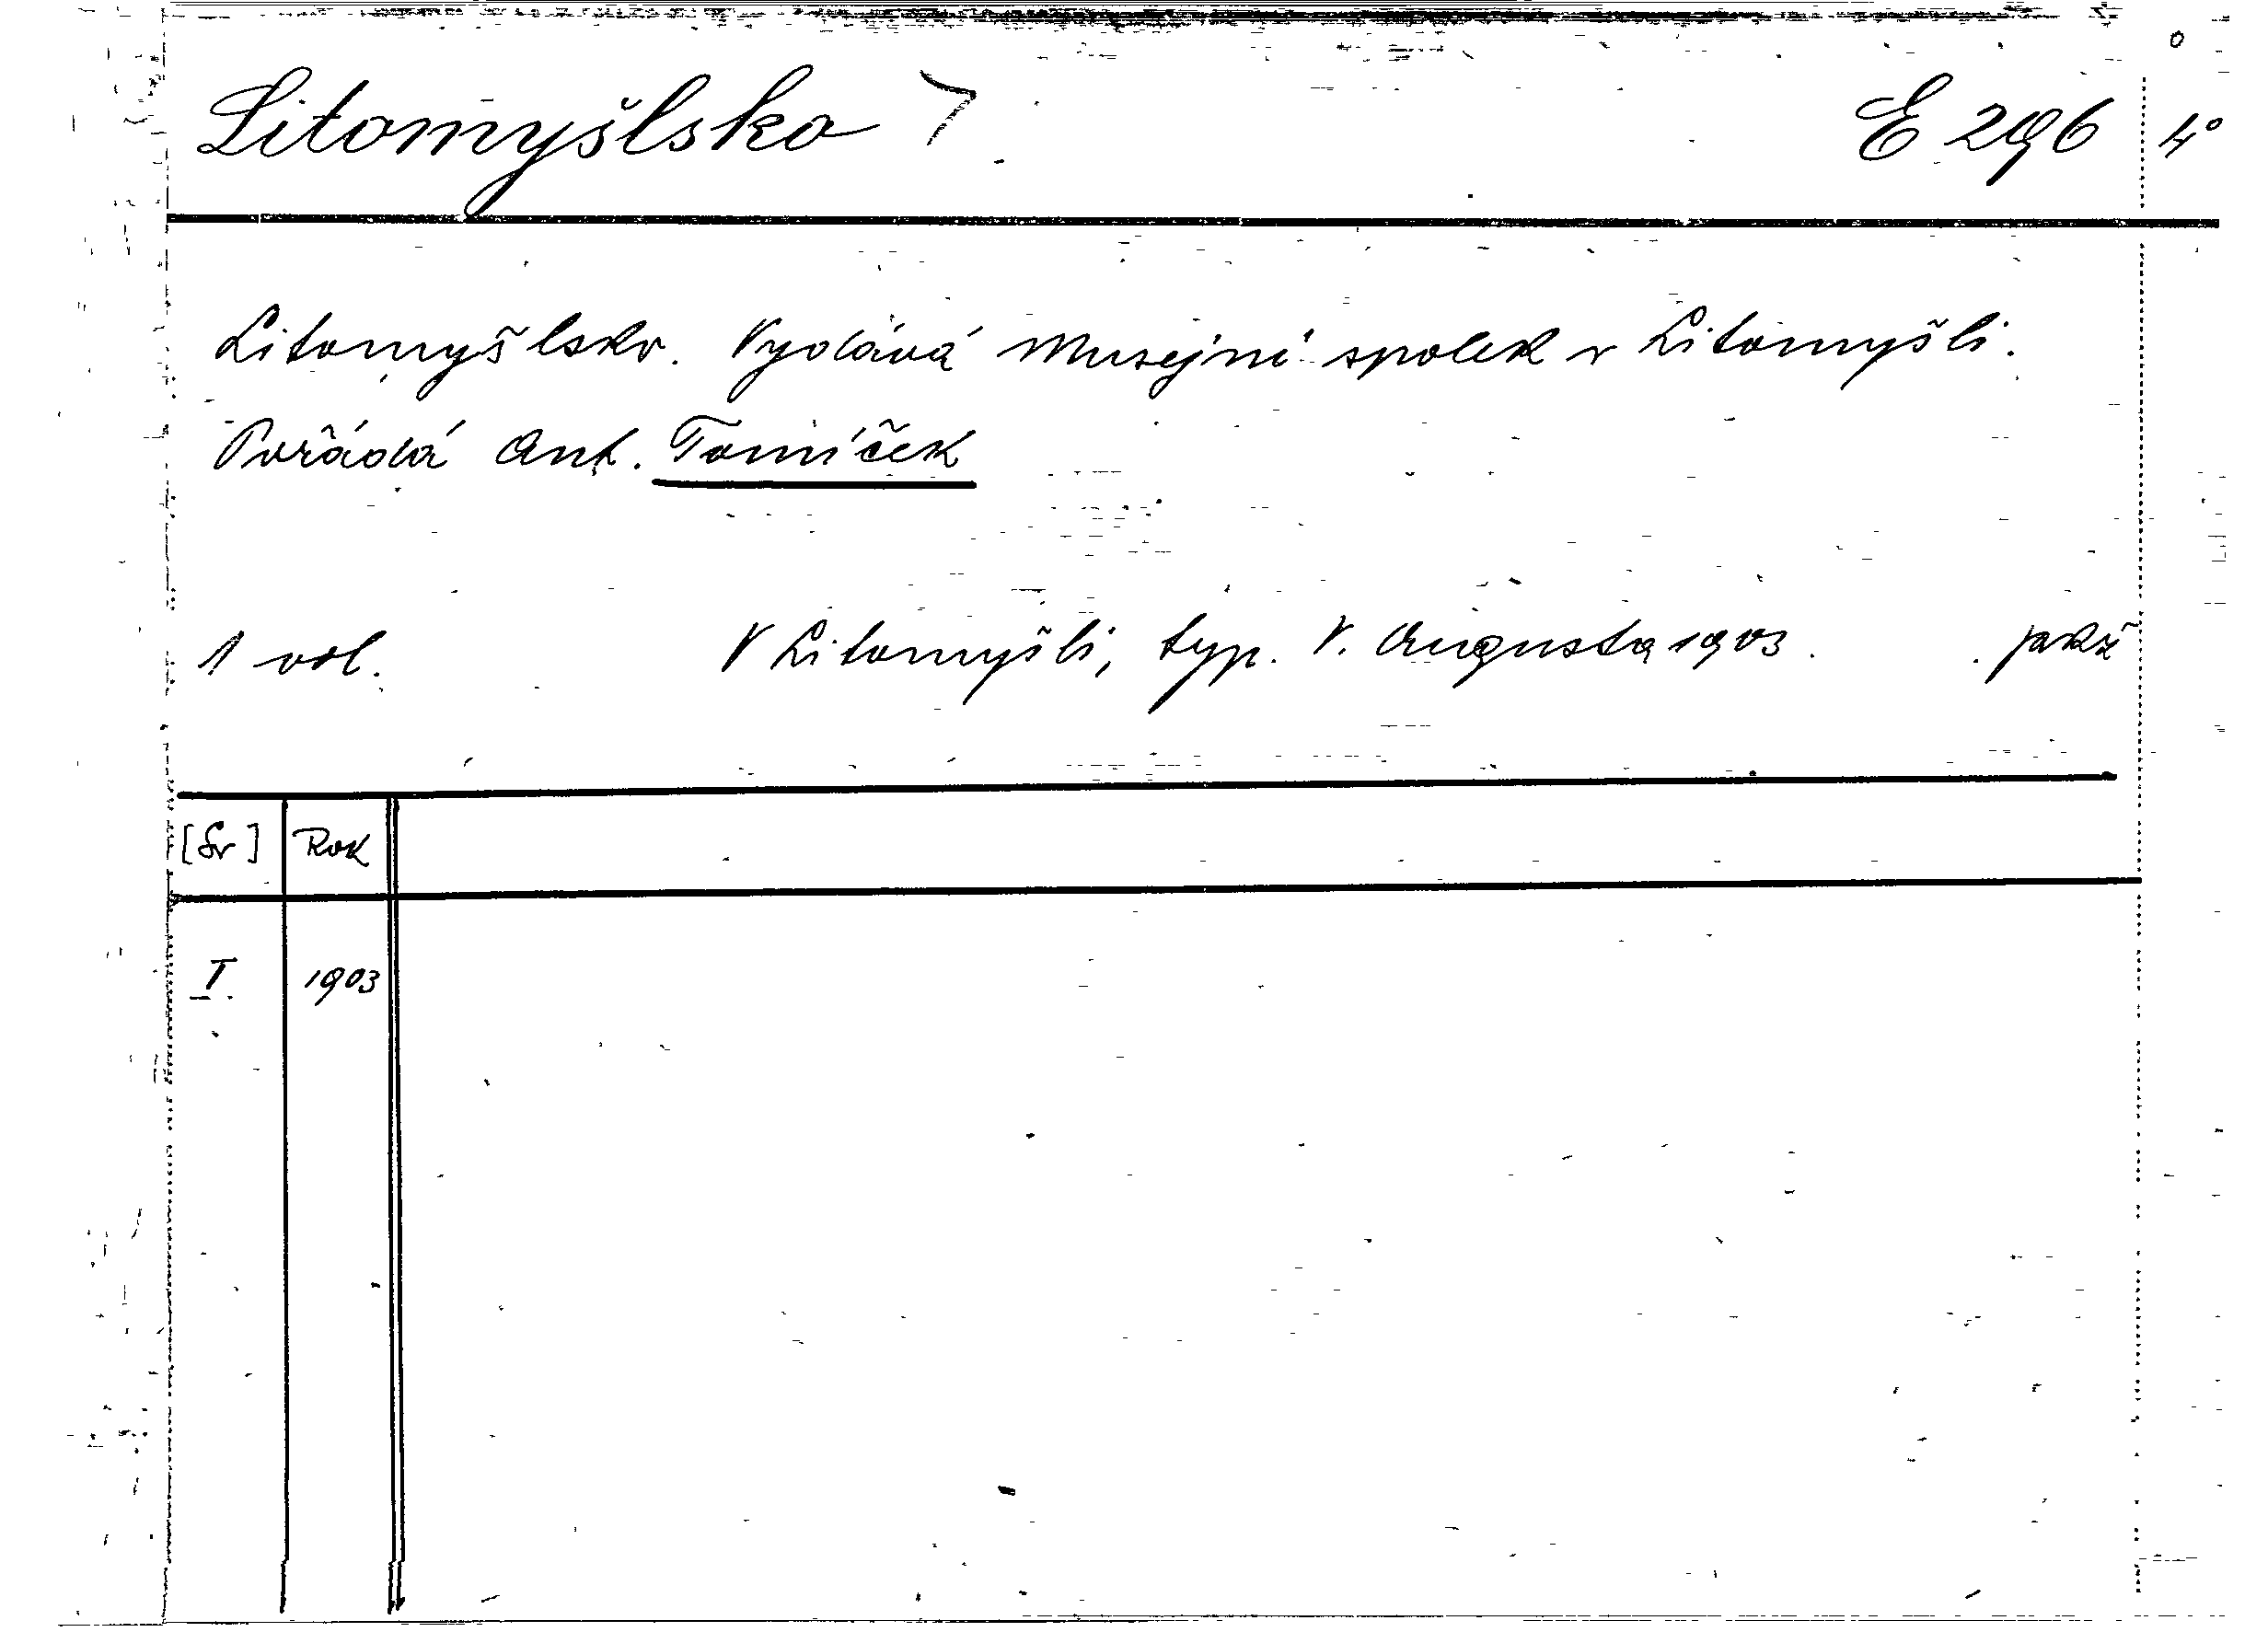 Litomyšlsko 7 E 296 4°
Litomyšlsko. Vydává Musejní spolek v Litomyšli.
Pořádá Ant. Tomíček
1 vol. V Litomyšli, typ. V. Augusta 1903.
[Sv] Rok
I. 1903